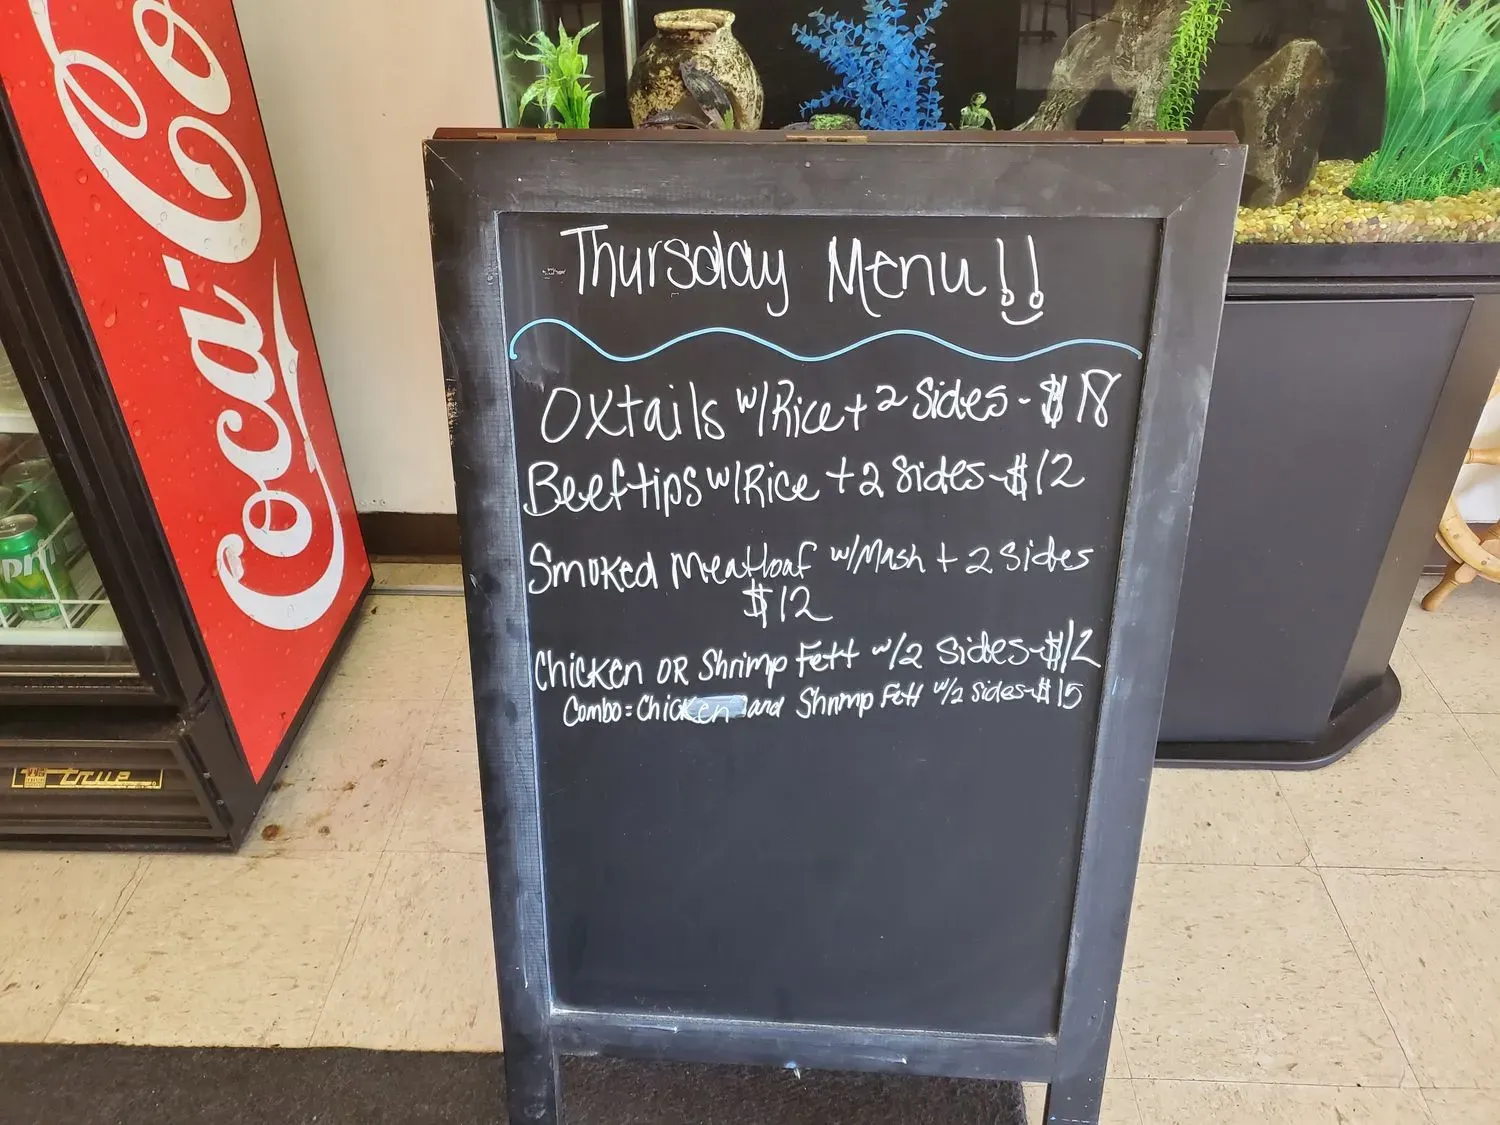 Coca-Co
Thursday Menu!!
Oxtails w/Rice + 2 Sides - $18
Beeftips w/Rice + 2 Sides - $12
Smoked Meatloaf w/Mash + 2 Sides
$12
Chicken OR Shrimp Fett w/2 Sides - $12
Combo = Chicken and Shrimp Fett w/2 Sides - $15
true